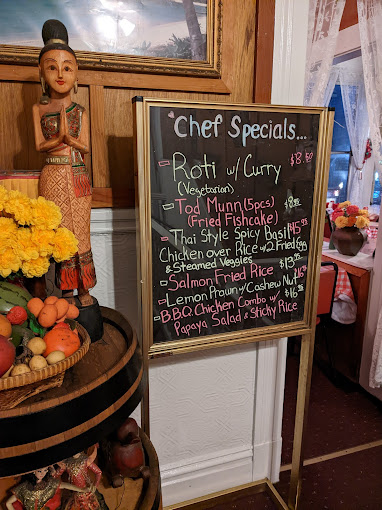 Chef Specials...
Roti w/ Curry $8.50
(Vegetarian)
Tod Munn (5pcs) $8.95
(Fried Fishcake)
Thai Style Spicy Basil $15.95
Chicken over Rice w/ 2 Fried Egg
& Steamed Veggies
Salmon Fried Rice $13.95
Lemon Prawn w/ Cashew Nut
B.B.Q. Chicken Combo w/ $16.95
Papaya Salad & Sticky Rice